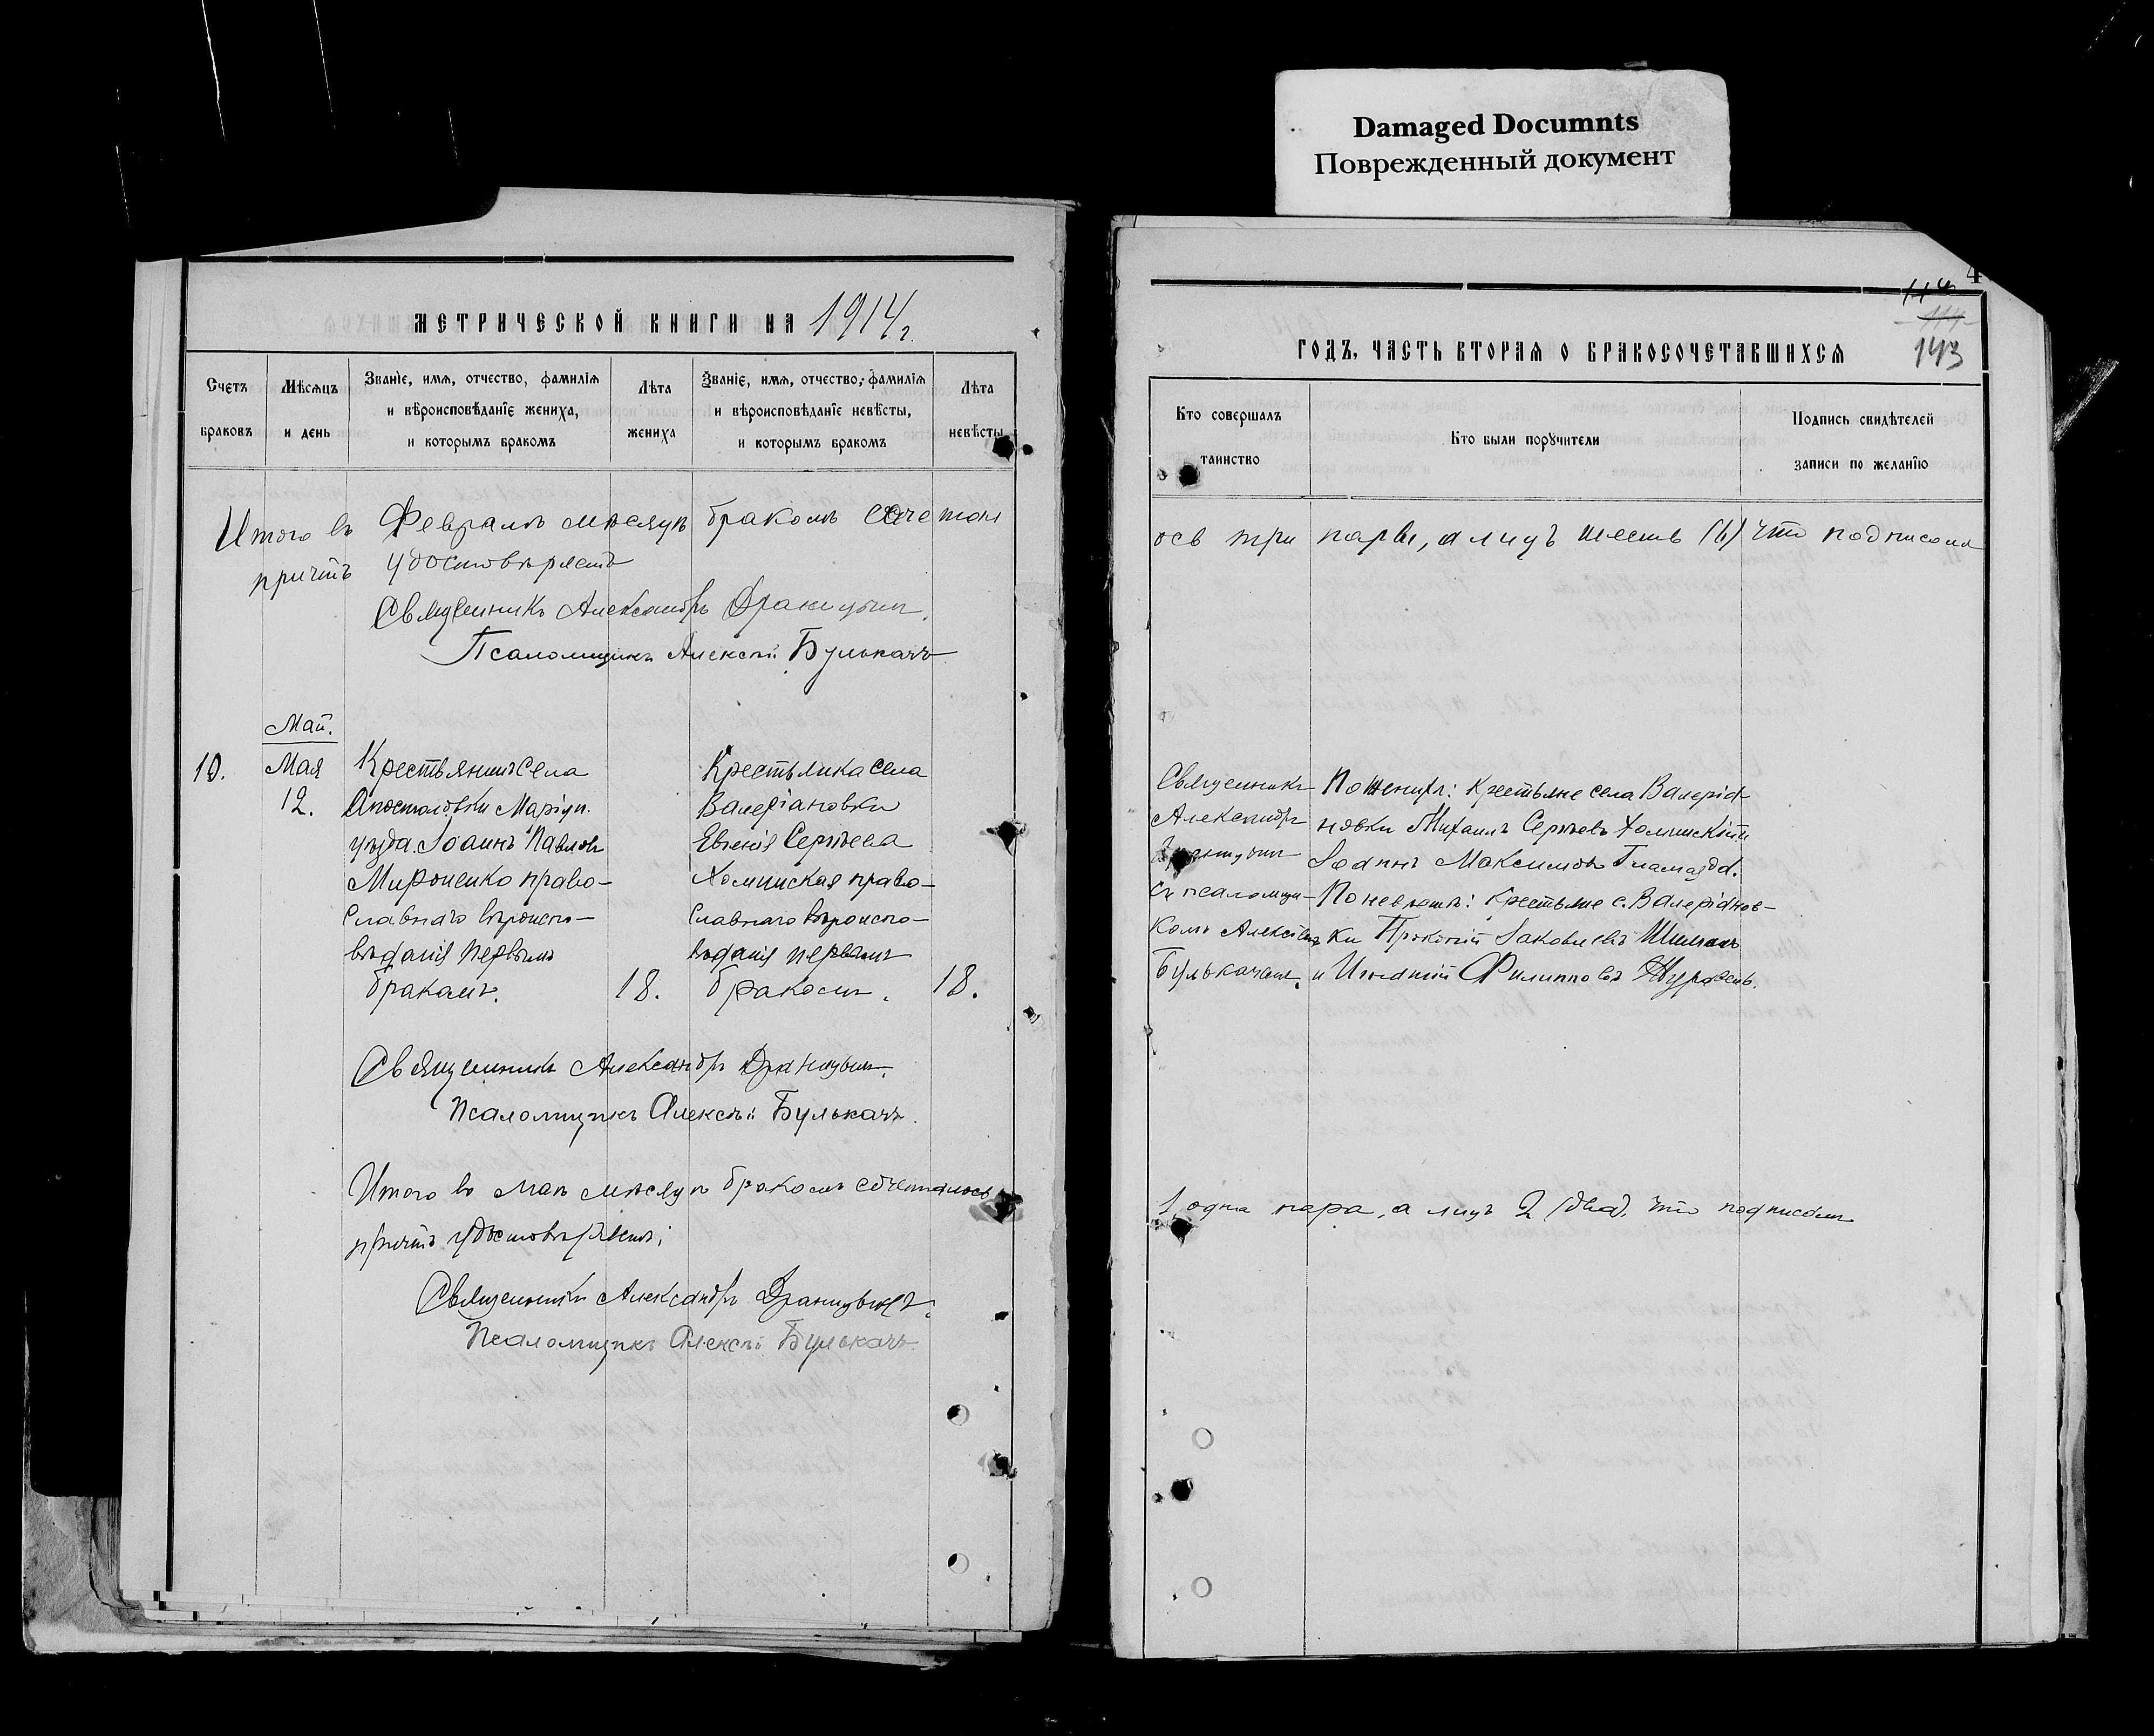 Damaged Documnts
Поврежденный документ
МЕТРИЧЕСКОЙ КНИГИ НА 1914 г.
Счетъ браковъ
Мѣсяцъ и день
Званіе, имя, отчество, фамилія и вѣроисповѣданіе жениха, и которымъ бракомъ
Лѣта жениха
Званіе, имя, отчество, фамилія и вѣроисповѣданіе невѣсты, и которымъ бракомъ
Лѣта невѣсты
Итого въ Февралѣ мѣсяцѣ бракомъ сочетал
причтъ удостовѣряетъ
Священникъ Александръ
Псаломщикъ Алексѣй Булькачъ
Май.
10. Мая 12.
Крестьянинъ села
Апостоловки Маріуп.
уѣзда Іоаннъ Павловъ
Мироненко право-
славнаго вѣроиспо-
вѣданія первымъ
бракомъ.
18.
Крестьянка села
Валеріановки
Евгенія Сергѣева
Холминская право-
славнаго вѣроиспо-
вѣданія первымъ
бракомъ.
18.
Священникъ Александръ
Псаломщикъ Алексѣй Булькачъ.
Итого въ маѣ мѣсяцѣ бракомъ сочеталось
причтъ удостовѣряетъ:
Священникъ Александръ
Псаломщикъ Алексѣй Булькачъ.
4
114
143
ГОДЪ, ЧАСТЬ ВТОРАЯ О БРАКОСОЧЕТАВШИХСЯ
Кто совершалъ таинство
Кто были поручители
Подпись свидѣтелей записи по желанію
ось три пары, а лицъ шесть (6) что подписомъ
Священникъ
Александръ
съ псаломщи-
комъ Алексѣемъ
Булькачемъ.
По женихѣ: крестьяне села Валеріа-
новки Михаилъ Сергѣевъ Холминскій и
Іоаннъ Максимовъ
По невѣстѣ: крестьяне с. Валеріанов-
ки Прокопій Іаковлевъ
и Игнатій Филипповъ
1 одна пара, а лицъ 2 (два). что подписомъ